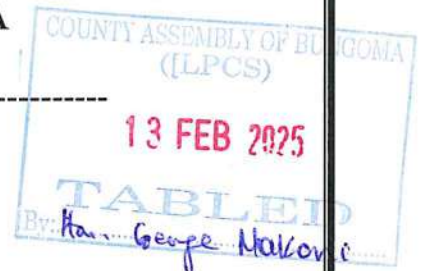 A
COUNTY ASSEMBLY OF BUNGOMA
([LPCS)
13 FEB 2025
TABLED
By: Hon. George Makori